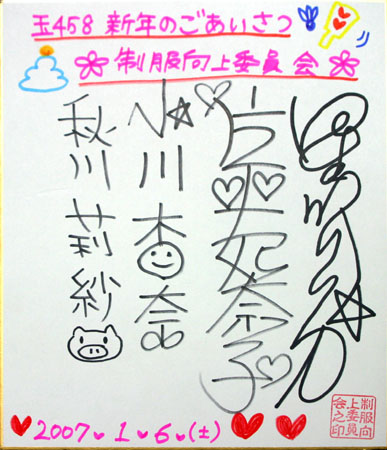 玉458 新年のごあいさつ
制服向上委員会
片平妃奈子
小川杏奈
秋川莉紗
制服向上委員会之印
2007 1 6 (土)